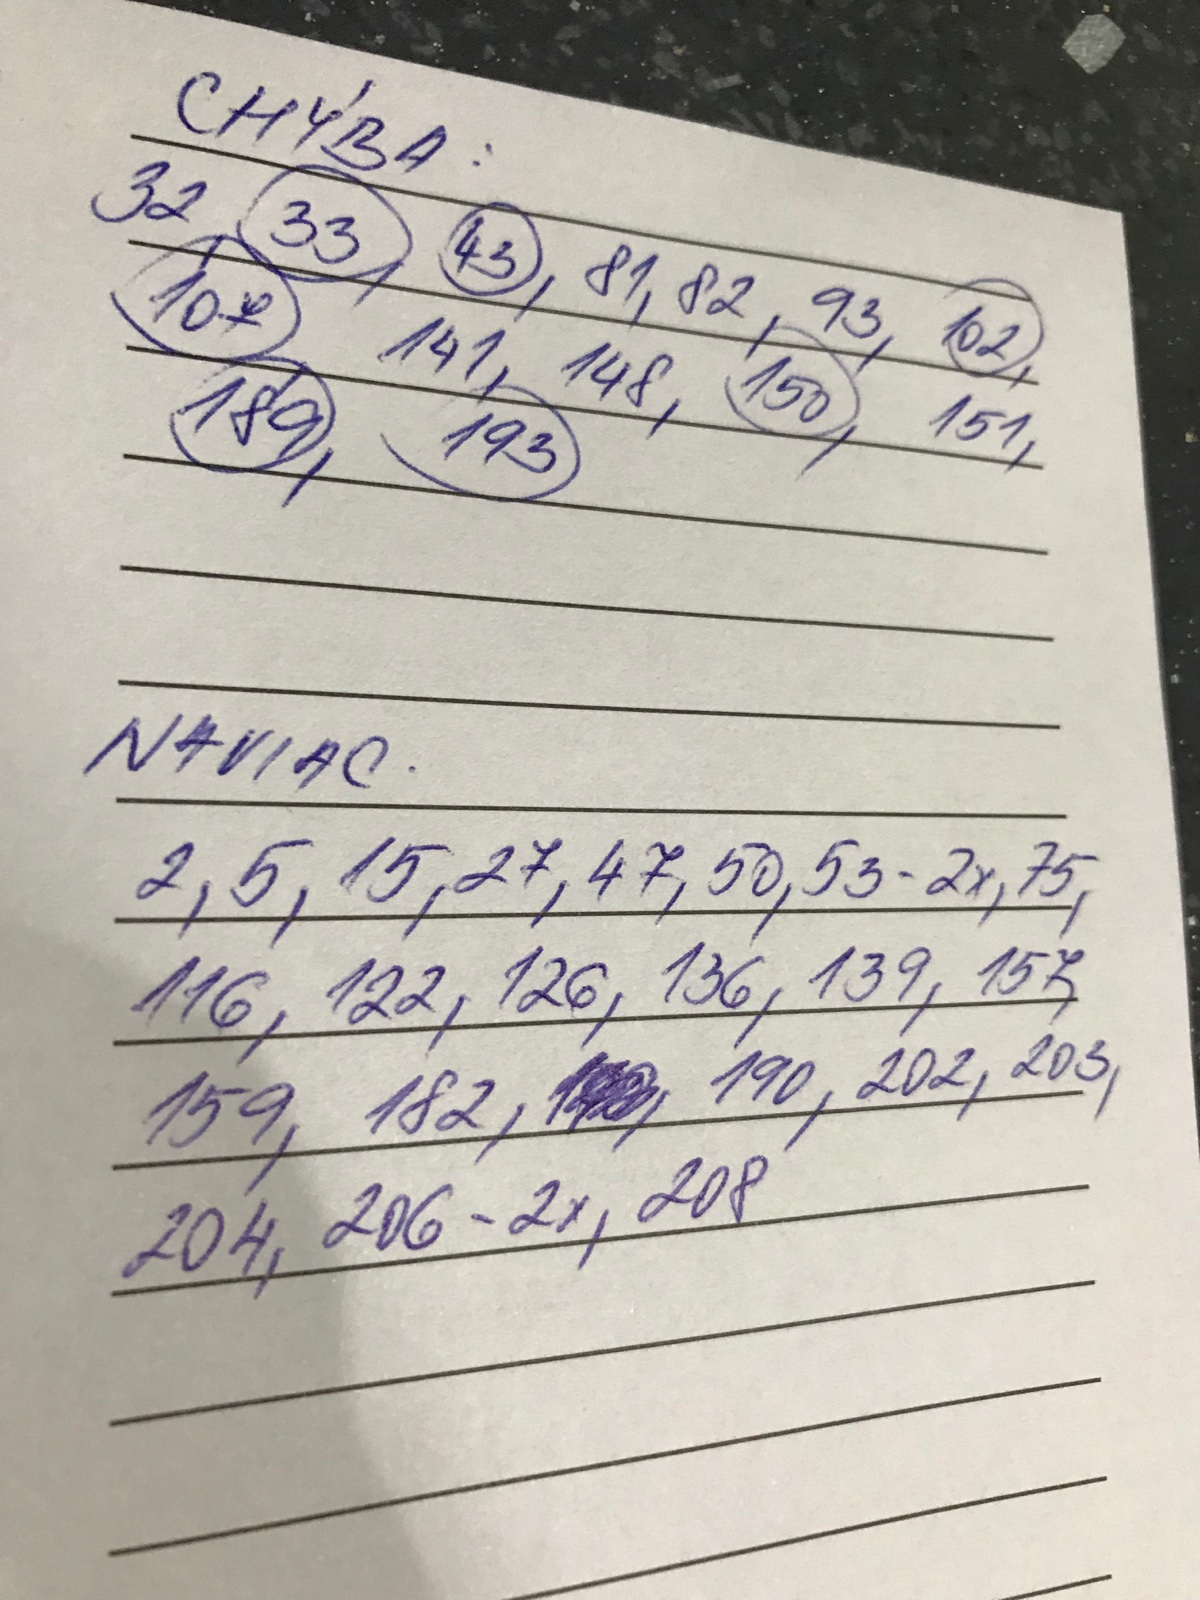 CHÝBA:
32, 33, 43, 81, 82, 93, 102,
107 141, 148, 150, 151,
189, 193
NAVIAC.
2, 5, 15, 27, 47, 50, 53-2x, 75,
116, 122, 126, 136, 139, 157,
159, 182, 190, 202, 203,
204, 206-2x, 208